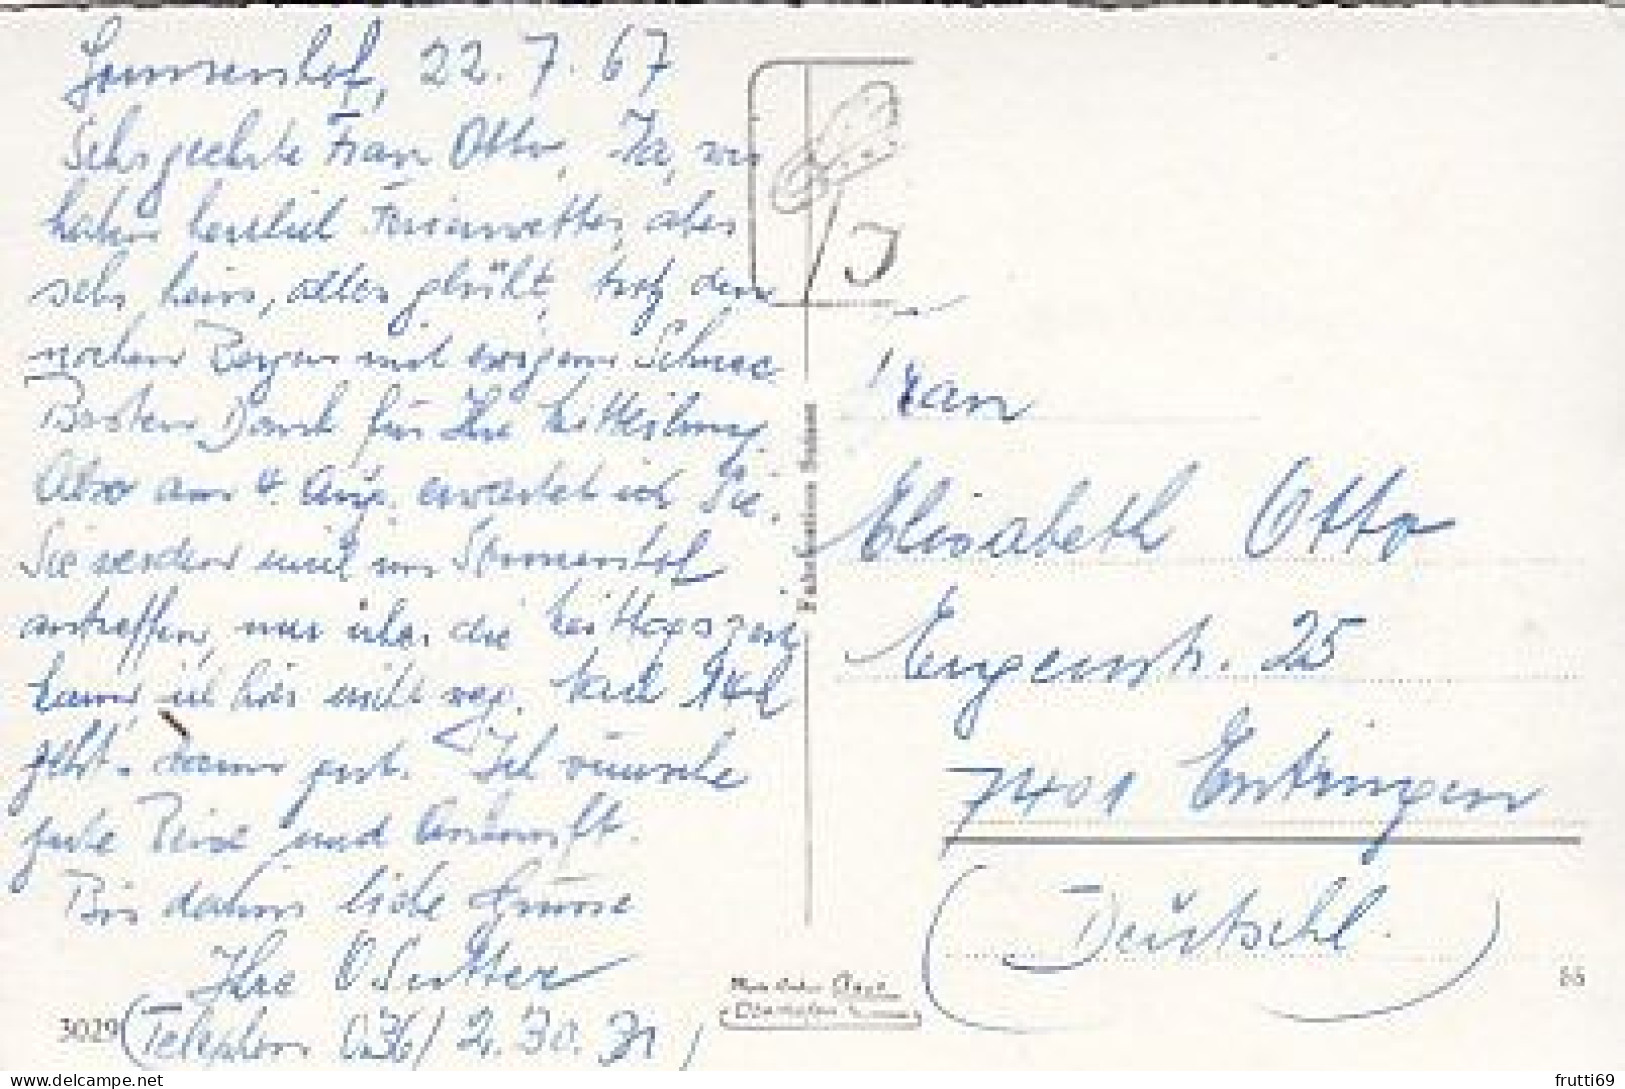 Sonnenhof, 22. 7. 67
Sehr geehrte Frau Otto, Ja, wir
haben herrlich Ferienwetter, aber
sehr heiss, alles glüht, trotz den
nahen Bergen mit ewigem Schnee
Besten Dank für Ihre Mitteilung.
Also am 4. Aug. erwartet ich Sie.
Sie werden mich im Sonnenhof
antreffen, nur über die Mittagszeit
kann ich hier nicht weg. Nach
geht's dann gut. Ich wünsche
gute Reise und Ankunft.
Bis dahin liebe Grüsse
Ihre O Sutter
(Telephon 036) 2. 30. 31)
3029
Frau
Elisabeth Otto
Eugenstr. 25
7401 Entringen
(Deutschl.
55
delcampe.net
frutti69